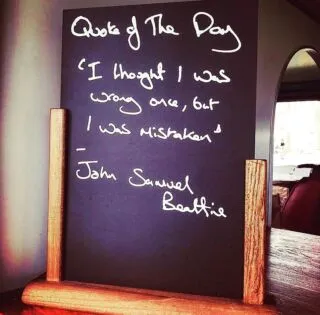 Quote of The Day
"I thought I was
wrong once, but
I was mistaken"
-
John Samuel
Beattine